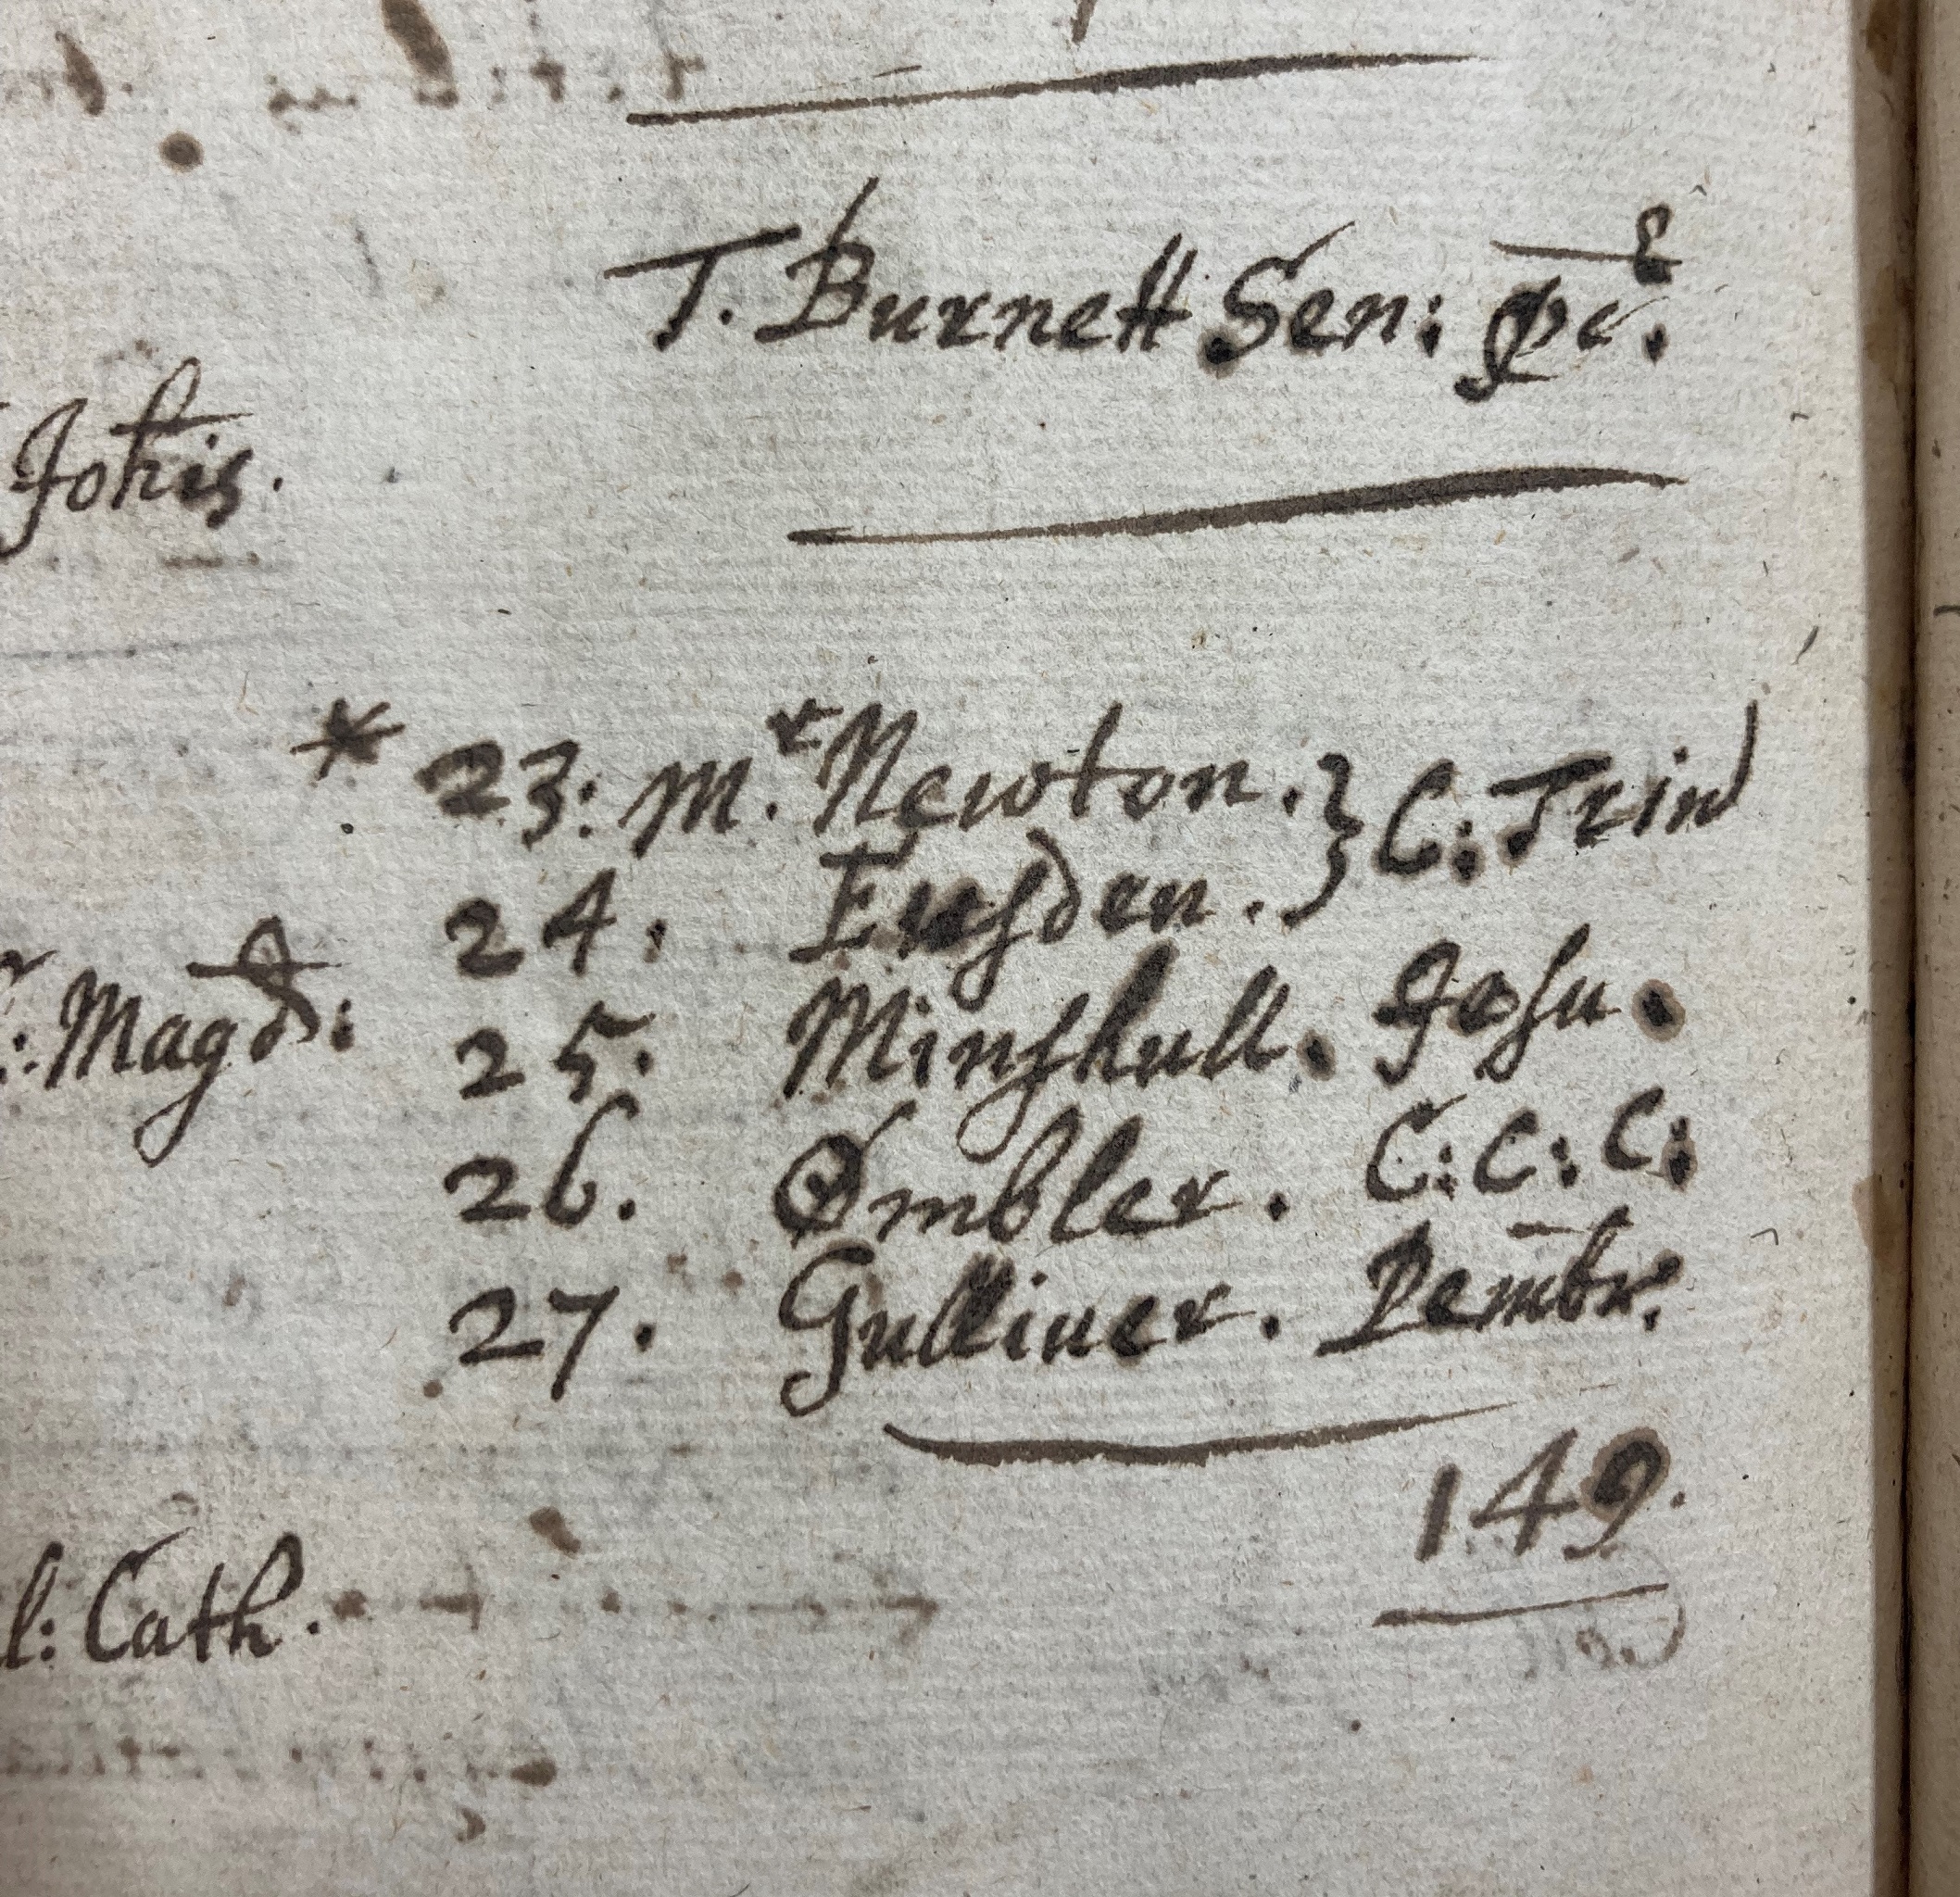 T. Burnett Sen:
Johis.
* 23: M.r Newton. } C: Trin
24. Eusden.
: Magd:
25. Minshull. Jesu.
26. Ombler. C: C: C:
27. Gulliver. Pembr.
149.
l: Cath.